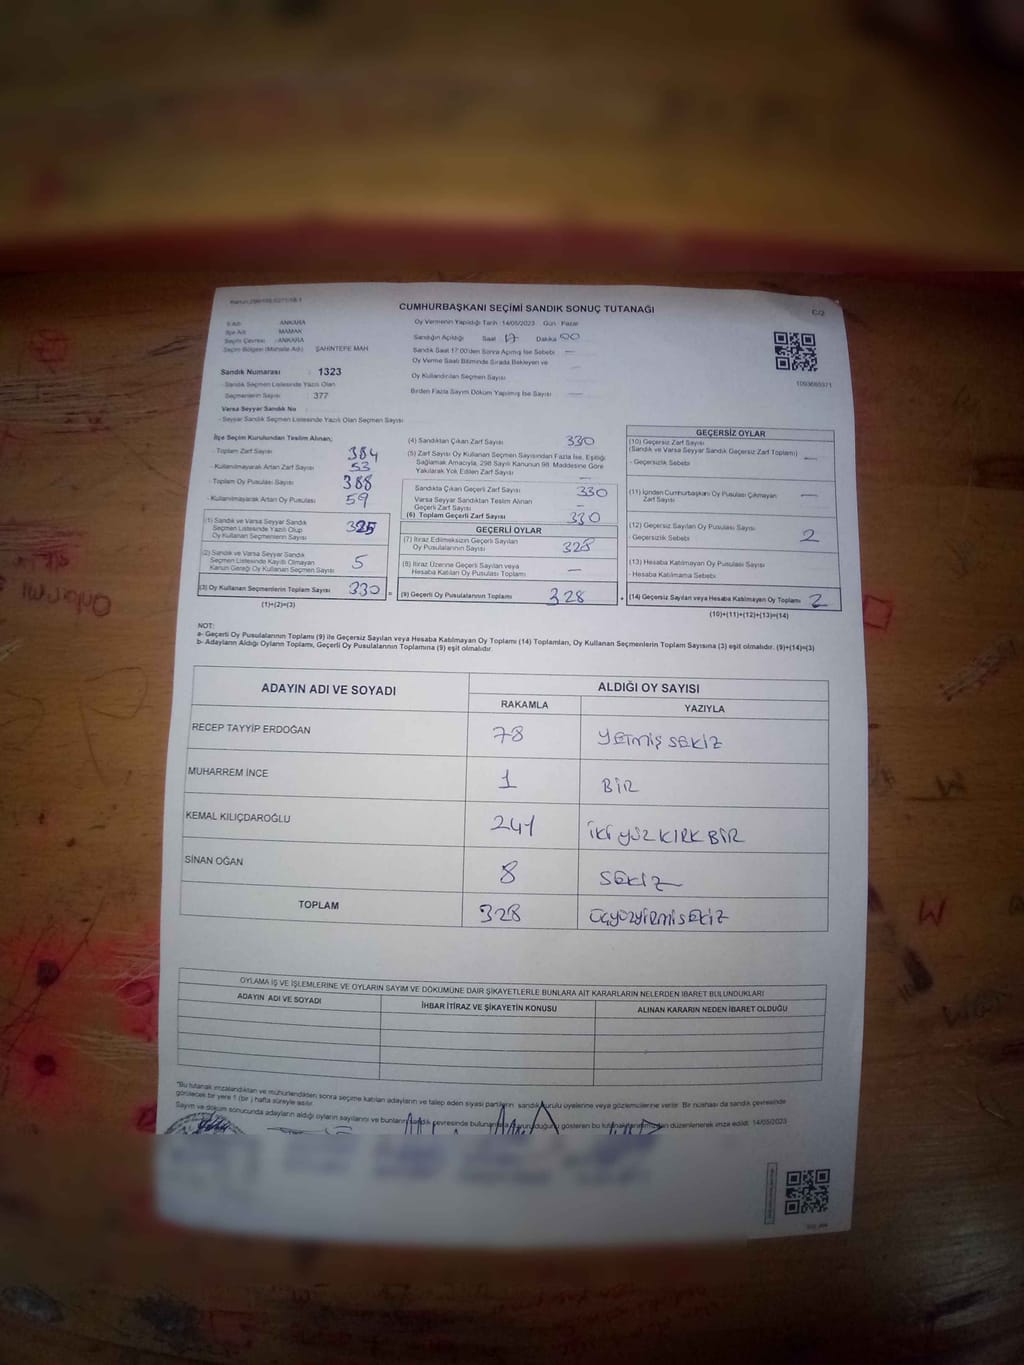 CUMHURBAŞKANI SEÇİMİ SANDIK SONUÇ TUTANAĞI
C/2
İl Adı : ANKARA
İlçe Adı : MAMAK
Seçim Çevresi : ANKARA
Seçim Bölgesi (Mahalle Adı) : ŞAHİNTEPE MAH
Oy Vermenin Yapıldığı Tarih : 14/05/2023 Gün : Pazar
Sandığın Açıldığı Saat 17 Dakika 00
Sandık Saat 17:00'den Sonra Açılmış İse Sebebi —
Oy Verme Saati Bitiminde Sırada Bekleyen ve
Oy Kullandırılan Seçmen Sayısı
Birden Fazla Sayım Döküm Yapılmış İse Sayısı —
Sandık Numarası : 1323
- Sandık Seçmen Listesinde Yazılı Olan
Seçmenlerin Sayısı : 377
Varsa Seyyar Sandık No
- Seyyar Sandık Seçmen Listesinde Yazılı Olan Seçmen Sayısı
1093665371
İlçe Seçim Kurulundan Teslim Alınan;
- Toplam Zarf Sayısı 384
- Kullanılmayarak Artan Zarf Sayısı 53
- Toplam Oy Pusulası Sayısı 388
- Kullanılmayarak Artan Oy Pusulası 59
(1) Sandık ve Varsa Seyyar Sandık
Seçmen Listesinde Yazılı Olup
Oy Kullanan Seçmenlerin Sayısı 325
(2) Sandık ve Varsa Seyyar Sandık
Seçmen Listesinde Kayıtlı Olmayan
Kanun Gereği Oy Kullanan Seçmen Sayısı 5
(3) Oy Kullanan Seçmenlerin Toplam Sayısı 330
(1)+(2)=(3)
(4) Sandıktan Çıkan Zarf Sayısı 330
(5) Zarf Sayısı Oy Kullanan Seçmen Sayısından Fazla İse, Eşitliği
Sağlamak Amacıyla, 298 Sayılı Kanunun 98. Maddesine Göre
Yakılarak Yok Edilen Zarf Sayısı —
Sandıkta Çıkan Geçerli Zarf Sayısı 330
Varsa Seyyar Sandıktan Teslim Alınan
Geçerli Zarf Sayısı —
(6) Toplam Geçerli Zarf Sayısı 330
GEÇERLİ OYLAR
(7) İtiraz Edilmeksizin Geçerli Sayılan
Oy Pusulalarının Sayısı 328
(8) İtiraz Üzerine Geçerli Sayılan veya
Hesaba Katılan Oy Pusulası Toplamı —
(9) Geçerli Oy Pusulalarının Toplamı 328
GEÇERSİZ OYLAR
(10) Geçersiz Zarf Sayısı
(Sandık ve Varsa Seyyar Sandık Geçersiz Zarf Toplamı) —
- Geçersizlik Sebebi
(11) İçinden Cumhurbaşkanı Oy Pusulası Çıkmayan
Zarf Sayısı —
(12) Geçersiz Sayılan Oy Pusulası Sayısı 2
- Geçersizlik Sebebi
(13) Hesaba Katılmayan Oy Pusulası Sayısı
- Hesaba Katılmama Sebebi
(14) Geçersiz Sayılan veya Hesaba Katılmayan Oy Toplamı 2
(10)+(11)+(12)+(13)=(14)
NOT:
a- Geçerli Oy Pusulalarının Toplamı (9) ile Geçersiz Sayılan veya Hesaba Katılmayan Oy Toplamı (14) Toplamları, Oy Kullanan Seçmenlerin Toplam Sayısına (3) eşit olmalıdır. (9)+(14)=(3)
b- Adayların Aldığı Oyların Toplamı, Geçerli Oy Pusulalarının Toplamına (9) eşit olmalıdır.
ADAYIN ADI VE SOYADI ALDIĞI OY SAYISI
RAKAMLA YAZIYLA
RECEP TAYYİP ERDOĞAN 78 YETMİŞ SEKİZ
MUHARREM İNCE 1 BİR
KEMAL KILIÇDAROĞLU 241 İKİ YÜZ KIRK BİR
SİNAN OĞAN 8 SEKİZ
TOPLAM 328 ÜÇYÜZYİRMİSEKİZ
OYLAMA İŞ VE İŞLEMLERİNE VE OYLARIN SAYIM VE DÖKÜMÜNE DAİR ŞİKAYETLERLE BUNLARA AİT KARARLARIN NELERDEN İBARET BULUNDUKLARI
ADAYIN ADI VE SOYADI İHBAR İTİRAZ VE ŞİKAYETİN KONUSU ALINAN KARARIN NEDEN İBARET OLDUĞU
*Bu tutanak imzalandıktan ve mühürlendikten sonra seçime katılan adayların ve talep eden siyasi partilerin sandık kurulu üyelerine veya gözlemcilerine verilir. Bir nüshası da sandık çevresinde
görülecek bir yere 1 (bir) hafta süreyle asılır.
Sayım ve döküm sonucunda adayların aldığı oyların sayılarını ve bunların sandık çevresinde bulunanlara duyurulduğunu gösteren bu tutanak tarafımızdan düzenlenerek imza edildi. 14/05/2023